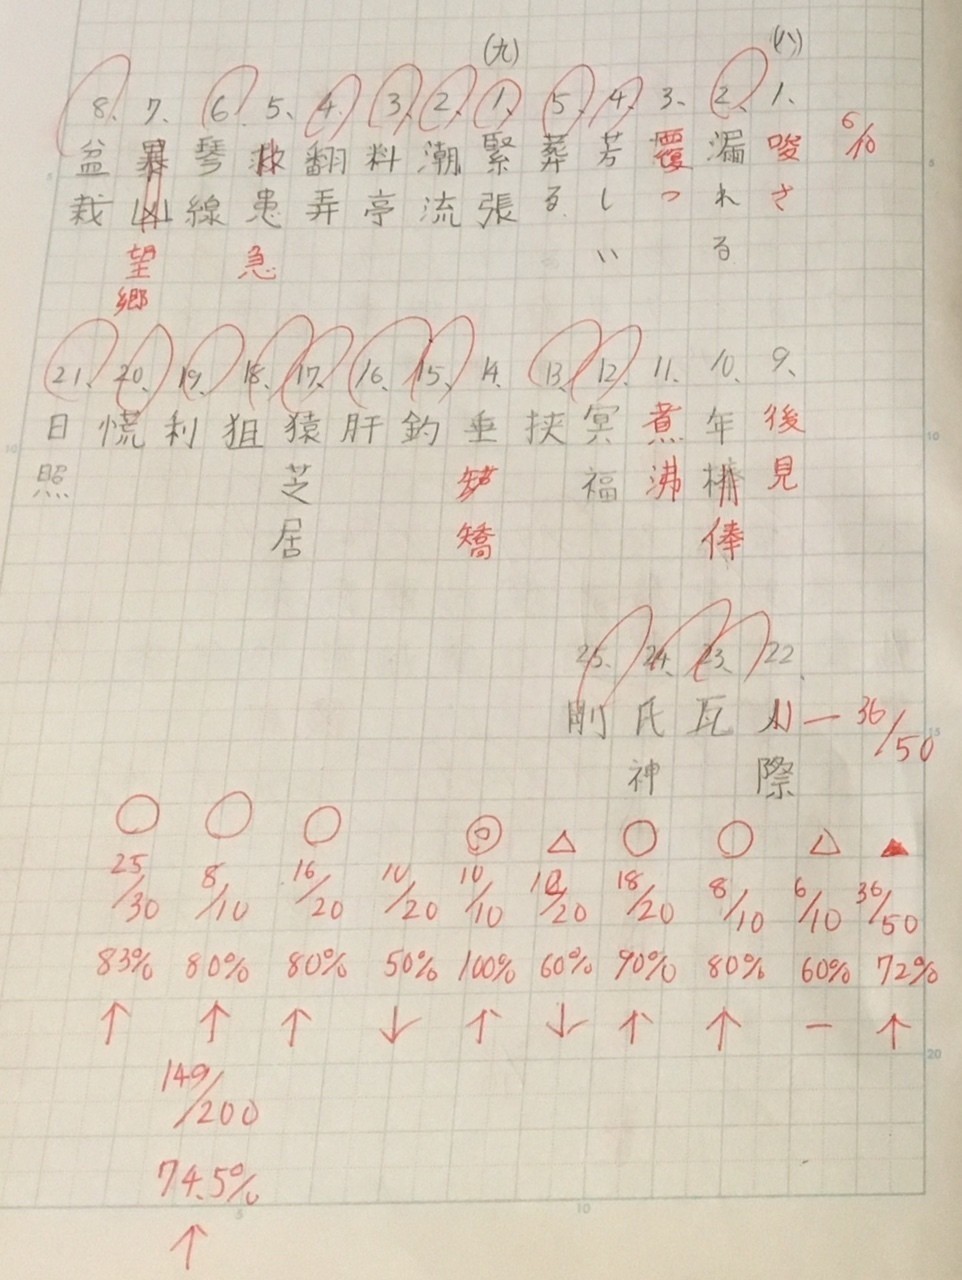 (八)
1、唆さ
2、漏れる
3、覆っ
4、芳しい
5、葬る
6/10
(九)
1、緊張
2、潮流
3、料亭
4、翻弄
5、救患急
6、琴線
7、望郷
8、盆栽
9、後見
10、年棒俸
11、煮沸
12、冥福
13、挟
14、垂矯
15、釣
16、肝
17、猿芝居
18、狙
19、利
20、慌
21、日照
22、際
23、瓦
24、氏神
25、剛
36/50
○ ○ ○ ◎ △ ○ ○ △ ▲
25/30 8/10 16/20 10/20 10/10 /20 18/20 8/10 6/10 36/50
83% 80% 80% 50% 100% 60% 90% 80% 60% 72%
↑ ↑ ↑ ↓ ↑ ↓ ↑ ↑ － ↑
149/200
74.5%
↑